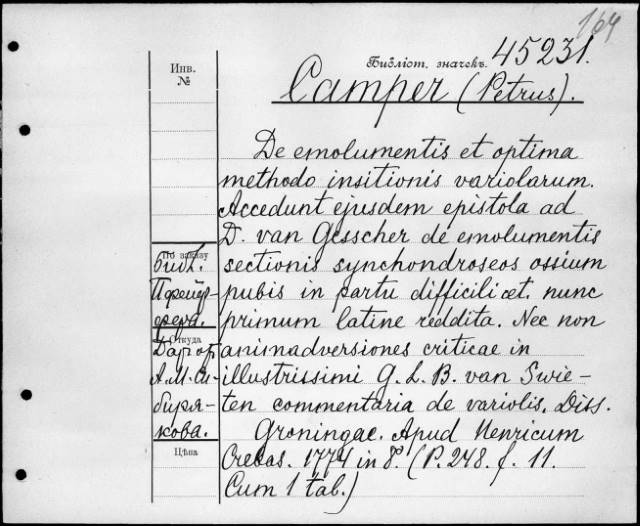 164
Инв. №
Библіот. значекъ. 45231.
Camper (Petrus).
De emolumentis et optima
methodo insitionis variolarum.
Accedunt ejusdem epistola ad
D. van Gesscher de emolumentis
sectionis synchondroseos ossium
pubis in partu difficili et. nunc
primum latine reddita. Nec non
animadversiones criticae in
illustrissimi G. L. B. van Swie-
ten commentaria de variolis. Diss.
Groningae. Apud Henricum
Crebas. 1774 in 8º. (P. 248. f. 11.
Cum 1 tab.)
По заказу
Библ.
Пфейф-
фера.
Откуда
Дар от
А. М. Си-
биря-
кова.
Цѣна